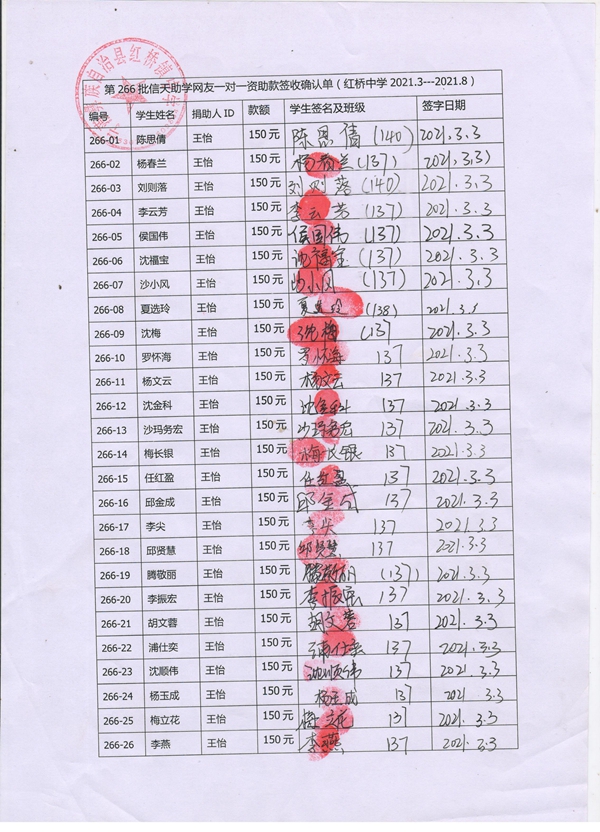 族自治县红桥镇
第 266 批信天助学网友一对一资助款签收确认单（红桥中学 2021.3---2021.8）
编号 学生姓名 捐助人 ID 款额 学生签名及班级 签字日期
266-01 陈思倩 王怡 150 元 陈思倩 (140) 2021.3.3
266-02 杨春兰 王怡 150 元 杨春兰 (137) 2021.3.3)
266-03 刘则落 王怡 150 元 刘则落 (140) 2021.3.3
266-04 李云芳 王怡 150 元 李云芳 (137) 2021.3.3
266-05 侯国伟 王怡 150 元 侯国伟 (137) 2021.3.3
266-06 沈福宝 王怡 150 元 沈福宝 (137) 2021.3.3
266-07 沙小风 王怡 150 元 沙小风 (137) 2021.3.3
266-08 夏选玲 王怡 150 元 夏选玲 (138) 2021.3.3
266-09 沈梅 王怡 150 元 沈梅 (137 2021.3.3
266-10 罗怀海 王怡 150 元 罗怀海 137 2021.3.3
266-11 杨文云 王怡 150 元 杨文云 137 2021.3.3
266-12 沈金科 王怡 150 元 沈金科 137 2021.3.3
266-13 沙玛务宏 王怡 150 元 沙玛务宏 137 2021.3.3
266-14 梅长银 王怡 150 元 梅长银 137 2021.3.3
266-15 任红盈 王怡 150 元 任红盈 137 2021.3.3
266-16 邱金成 王怡 150 元 邱金成 137 2021.3.3
266-17 李尖 王怡 150 元 李尖 137 2021.3.3
266-18 邱贤慧 王怡 150 元 邱贤慧 137 2021.3.3
266-19 腾敬丽 王怡 150 元 (137) 2021.3.3
266-20 李振宏 王怡 150 元 李振宏 137 2021.3.3
266-21 胡文蓉 王怡 150 元 胡文蓉 137 2021.3.3
266-22 浦仕奕 王怡 150 元 浦仕奕 137 2021.3.3
266-23 沈顺伟 王怡 150 元 沈顺伟 137 2021.3.3
266-24 杨玉成 王怡 150 元 杨玉成 137 2021.3.3
266-25 梅立花 王怡 150 元 梅立花 137 2021.3.3
266-26 李燕 王怡 150 元 李燕 137 2021.3.3